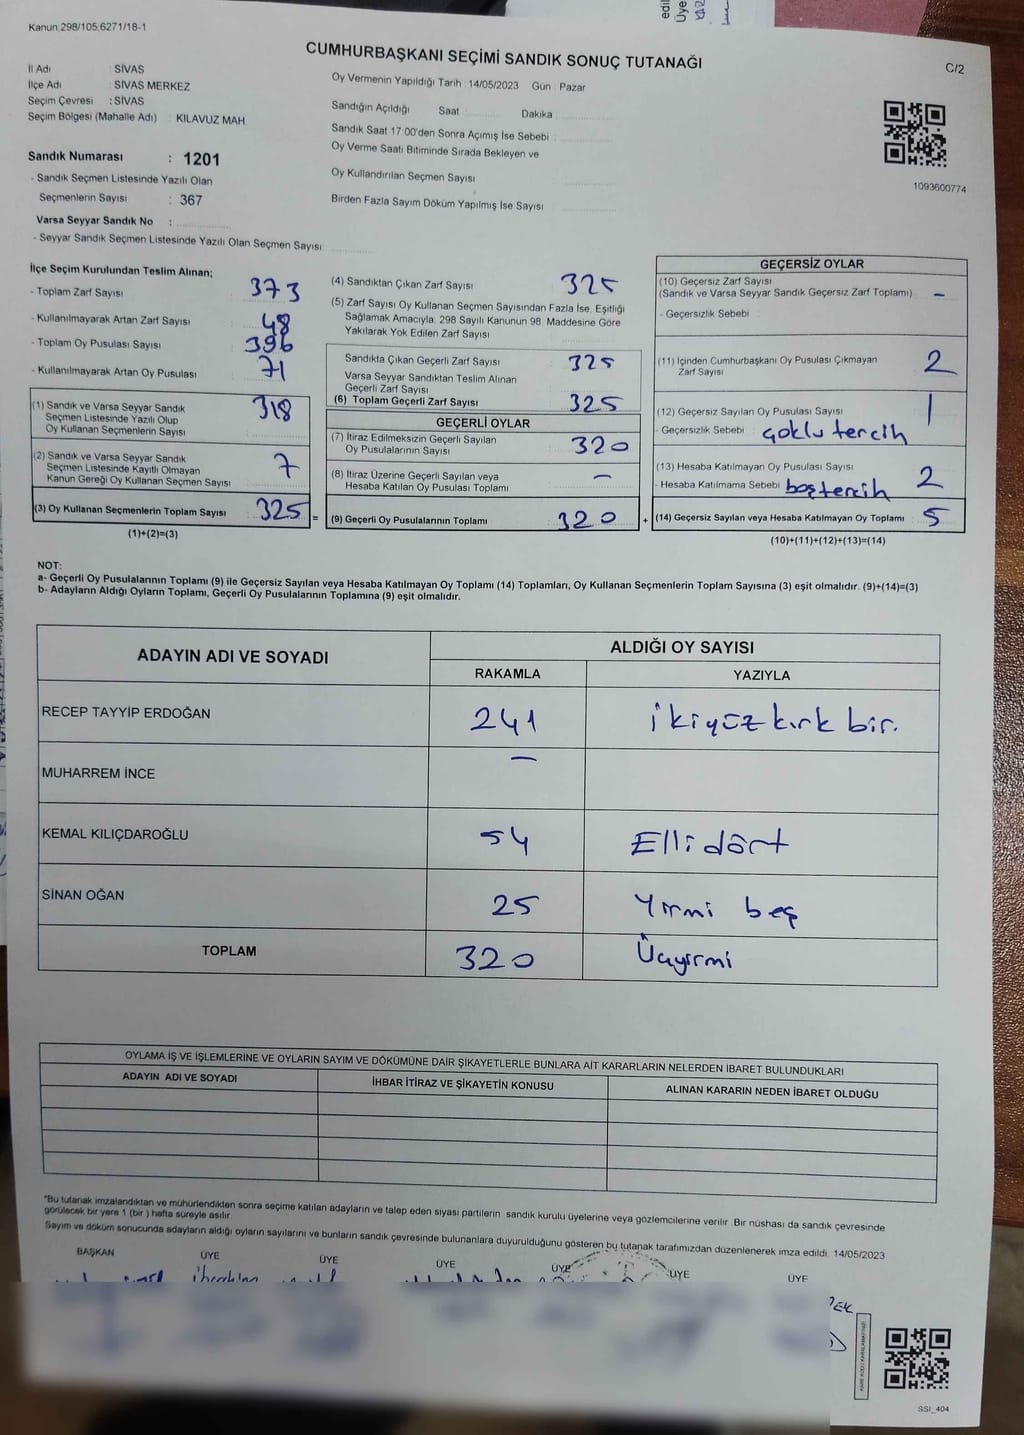 Kanun 298/105,6271/18-1
CUMHURBAŞKANI SEÇİMİ SANDIK SONUÇ TUTANAĞI
C/2
İl Adı : SİVAS
İlçe Adı : SİVAS MERKEZ
Seçim Çevresi : SİVAS
Seçim Bölgesi (Mahalle Adı) : KILAVUZ MAH.
Sandık Numarası : 1201
- Sandık Seçmen Listesinde Yazılı Olan
Seçmenlerin Sayısı : 367
Varsa Seyyar Sandık No :
- Seyyar Sandık Seçmen Listesinde Yazılı Olan Seçmen Sayısı
Oy Vermenin Yapıldığı Tarih : 14/05/2023 Gün : Pazar
Sandığın Açıldığı Saat Dakika
Sandık Saat 17:00'den Sonra Açımış İse Sebebi
Oy Verme Saati Bitiminde Sırada Bekleyen ve
Oy Kullandırılan Seçmen Sayısı
Birden Fazla Sayım Döküm Yapılmış İse Sayısı
1093600774
İlçe Seçim Kurulundan Teslim Alınan;
- Toplam Zarf Sayısı 373
- Kullanılmayarak Artan Zarf Sayısı 48
- Toplam Oy Pusulası Sayısı 396
- Kullanılmayarak Artan Oy Pusulası 71
(1) Sandık ve Varsa Seyyar Sandık
Seçmen Listesinde Yazılı Olup
Oy Kullanan Seçmenlerin Sayısı 318
(2) Sandık ve Varsa Seyyar Sandık
Seçmen Listesinde Kayıtlı Olmayan
Kanun Gereği Oy Kullanan Seçmen Sayısı 7
(3) Oy Kullanan Seçmenlerin Toplam Sayısı 325 =
(1)+(2)=(3)
(4) Sandıktan Çıkan Zarf Sayısı 325
(5) Zarf Sayısı Oy Kullanan Seçmen Sayısından Fazla İse, Eşitliği
Sağlamak Amacıyla, 298 Sayılı Kanunun 98. Maddesine Göre
Yakılarak Yok Edilen Zarf Sayısı
Sandıkta Çıkan Geçerli Zarf Sayısı 325
Varsa Seyyar Sandıktan Teslim Alınan
Geçerli Zarf Sayısı
(6) Toplam Geçerli Zarf Sayısı 325
GEÇERLİ OYLAR
(7) İtiraz Edilmeksizin Geçerli Sayılan
Oy Pusulalarının Sayısı 320
(8) İtiraz Üzerine Geçerli Sayılan veya
Hesaba Katılan Oy Pusulası Toplamı —
(9) Geçerli Oy Pusulalarının Toplamı 320 +
GEÇERSİZ OYLAR
(10) Geçersiz Zarf Sayısı
(Sandık ve Varsa Seyyar Sandık Geçersiz Zarf Toplamı) –
- Geçersizlik Sebebi
(11) İçinden Cumhurbaşkanı Oy Pusulası Çıkmayan
Zarf Sayısı 2
(12) Geçersiz Sayılan Oy Pusulası Sayısı 1
- Geçersizlik Sebebi : çoklu tercih
(13) Hesaba Katılmayan Oy Pusulası Sayısı 2
- Hesaba Katılmama Sebebi boş tercih
(14) Geçersiz Sayılan veya Hesaba Katılmayan Oy Toplamı 5
(10)+(11)+(12)+(13)=(14)
NOT:
a- Geçerli Oy Pusulalarının Toplamı (9) ile Geçersiz Sayılan veya Hesaba Katılmayan Oy Toplamı (14) Toplamları, Oy Kullanan Seçmenlerin Toplam Sayısına (3) eşit olmalıdır. (9)+(14)=(3)
b- Adayların Aldığı Oyların Toplamı, Geçerli Oy Pusulalarının Toplamına (9) eşit olmalıdır.
ADAYIN ADI VE SOYADI ALDIĞI OY SAYISI
RAKAMLA YAZIYLA
RECEP TAYYİP ERDOĞAN 241 ikiyüz kırk bir.
MUHARREM İNCE —
KEMAL KILIÇDAROĞLU 54 Elli dört
SİNAN OĞAN 25 Yirmi beş
TOPLAM 320 Üçyirmi
OYLAMA İŞ VE İŞLEMLERİNE VE OYLARIN SAYIM VE DÖKÜMÜNE DAİR ŞİKAYETLERLE BUNLARA AİT KARARLARIN NELERDEN İBARET BULUNDUKLARI
ADAYIN ADI VE SOYADI İHBAR İTİRAZ VE ŞİKAYETİN KONUSU ALINAN KARARIN NEDEN İBARET OLDUĞU
*Bu tutanak imzalandıktan ve mühürlendikten sonra seçime katılan adayların ve talep eden siyasi partilerin sandık kurulu üyelerine veya gözlemcilerine verilir. Bir nüshası da sandık çevresinde
görülecek bir yere 1 (bir ) hafta süreyle asılır.
Sayım ve döküm sonucunda adayların aldığı oyların sayılarını ve bunların sandık çevresinde bulunanlara duyurulduğunu gösteren bu tutanak tarafımızdan düzenlenerek imza edildi. 14/05/2023
BAŞKAN ÜYE ÜYE ÜYE ÜYE ÜYE ÜYE
SSI_404